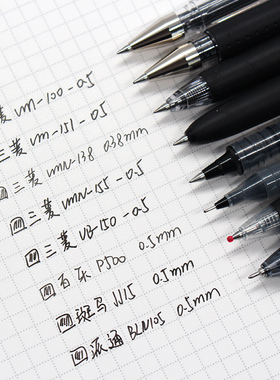 三菱 um-100-0.5
三菱 um-151-0.5
三菱 umn-138 0.38mm
三菱 umn-155-0.5
三菱 UB-150-0.5
百乐 P500 0.5mm
斑马 JJ15 0.5mm
派通 BLN105 0.5mm